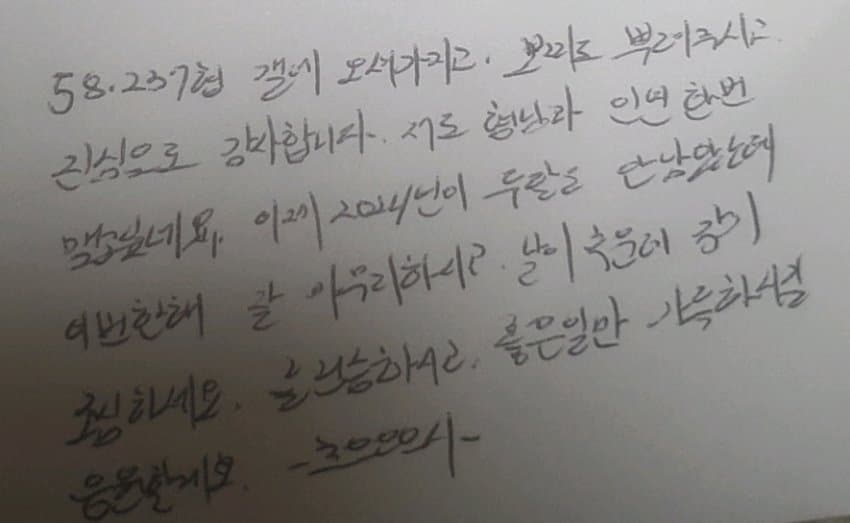 58.237형 갤에 오셔가지고. 보리도 뿌려주시고
진심으로 감사합니다. 저도 형님과 인연 한번
맺어보네요. 이제 2024년이 두달도 안남았는데
이번한해 잘 마무리하시고. 날이 추운데 감기
조심하세요. 늘 건승하시고. 좋은일만 가득하시길
응원할게요.